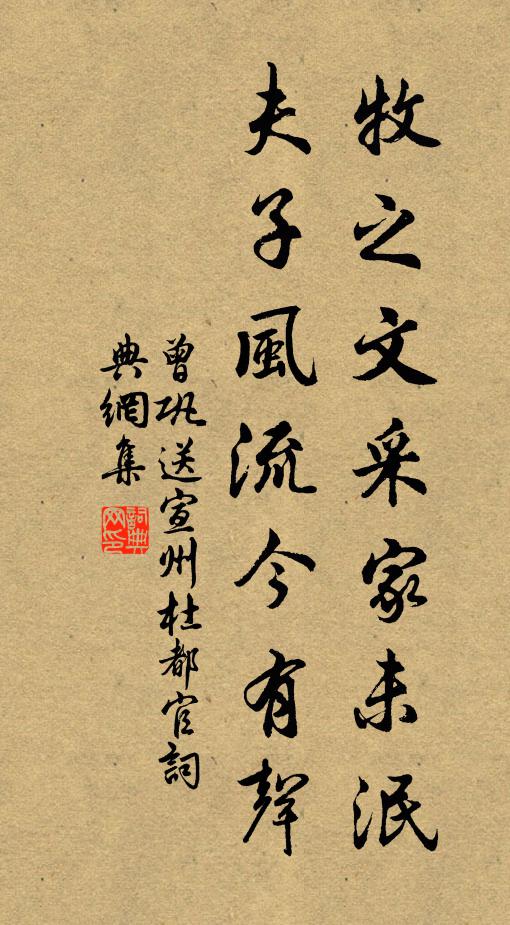 牧之文采家未泯
夫子風流今有聲
曾巩送宣州杜都官詞
典網集
詞典
网印